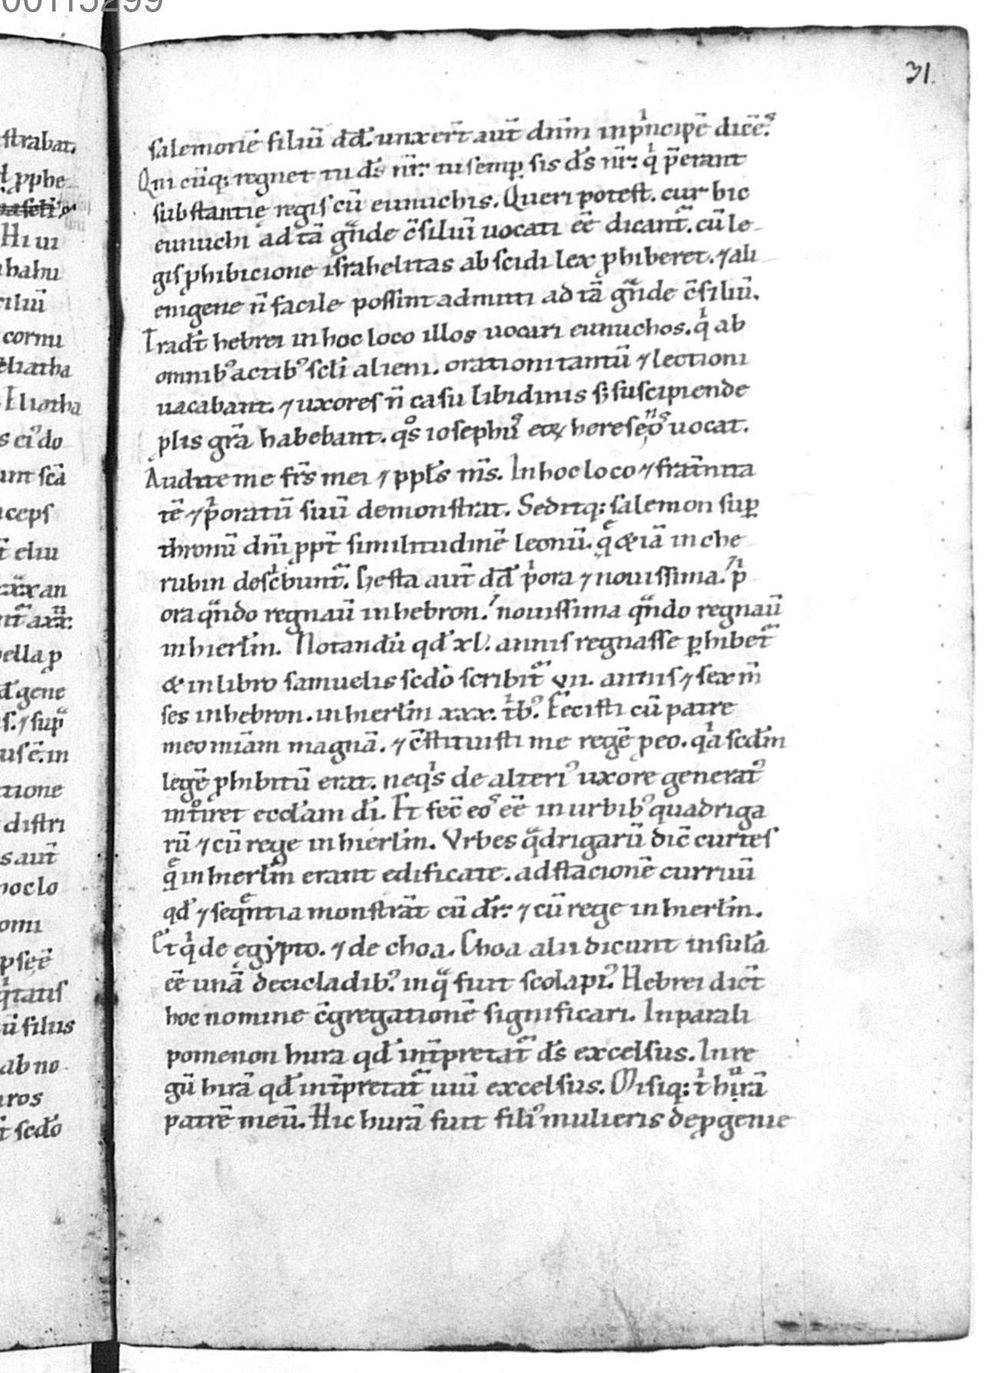 00115299
31
strabat.
pphe
Hi ui
habu
ciliū
cornu
eliatha
Eliatha
s ei᾽ do
unt scā
nceps
t̄ eliu
xxx an
ella p
gene
s. ⁊ sup
us ē. in
tione
distri
s aut̄
hoc lo
omi
pseē
ū filius
ab no
uros
t̄ sc̄do
salemonē filiū dd̄. unxer̄t aut̄ dn̄m in pⁱncipē dicē᾽.
Qui cūq; regnet tu ds̄ nr̄: tu semp̱ sis ds̄ nr̄: qⁱ p̄erant
substantię regis cū eunuchis. Queri potest. cur hic
eunuchi ad tā gᵃnde c̄siliū uocati eē dicant᷑. cū le-
gis ꝓhibicione israhelitas abscidi lex ꝓhiberet. ⁊ ali
enigene n̄ facile possint admitti ad tā gᵃnde c̄siliū.
Tradt̄ hebrei in hoc loco illos uocari eunuchos. qⁱ ab
omnib᾽ actib᾽ scl̄i alieni. orationi tantū ⁊ lectioni
uacabant. ⁊ uxores n̄ casu libidinis s; suscipiende
ꝓlis grā habebant. qᵒs iosephus eoꝝ hereseōs uocat.
Audite me frs̄ mei ⁊ ppl̄s ms̄. In hoc loco ⁊ fratⁿita
tē ⁊ pⁱoratū suū demonstrat. Seditq; salemon sup̱
thronū dn̄i ꝓpt̄ similitudinē leonū. qᵉ & iā in che
rubin desc̄bunt᷑. Gesta aut̄ dd̄ pⁱora ⁊ nouissima. pⁱ
ora qᵃndo regnau̅ in hebron. nouissima qᵃndo regnau̅
in hierl̄m. Notandū qd̄ xl. annis regnasse p̱hibet᷑
& in libro samuelis sc̄do scribit᷑ vii. annis ⁊ sex m̄
ses in hebron. in hierl̄m xxx. tⁱb᾽. Fecisti cū patre
meo mīam magnā. ⁊ c̄stituisti me regē p eo. qⁱa scd̄m
legē ꝓhibitū erat. neqⁱs de alteri᾽ uxore generat᾽
int̄ret eccl̄am dī. Et fec̄ eo᾽ eē in urbib᾽ quadriga
rū ⁊ cū rege in hierl̄m. Vrbes qᵃdrigarū dic̄ curtes
qᵉ in hierl̄m erant edificate. ad stacionē curruū
qd̄ ⁊ seqᵉntia monstrāt cū dr̄: ⁊ cū rege in hierl̄m.
Et qⁱ de egypto. ⁊ de choa. Choa alii dicunt insulā
eē unā de cicladib᾽. in qᵃ fuit scolapi᾽. Hebrei dic̄t
hoc nomine c̄gregationē significari. In parali
pomenon hura qd̄ int̄pretat᷑ ds̄ excelsus. In re
gū hirā qd̄ int̄pretat᷑ uiuī excelsus. Misiq; tⁱ hirā
patrē meū. Hic hurā fuit fili᾽ mulieris de ꝓgenie